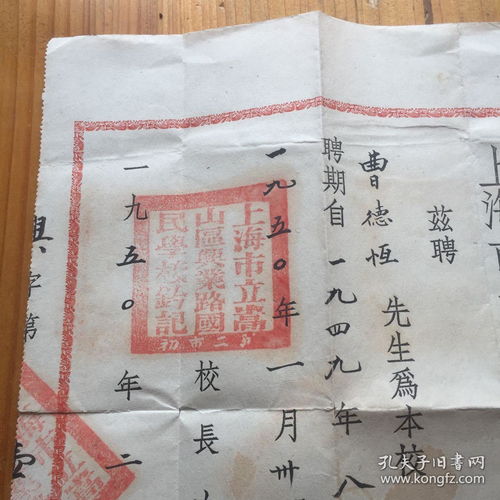 上海
茲聘
曹德恆 先生爲本校
聘期自一九四九年八
一九五〇年一月卅
上海市立嵩
山區興業路國
民學校鈐記
校長
一九五〇年二
興字第
孔夫子旧书网
kongfz.com